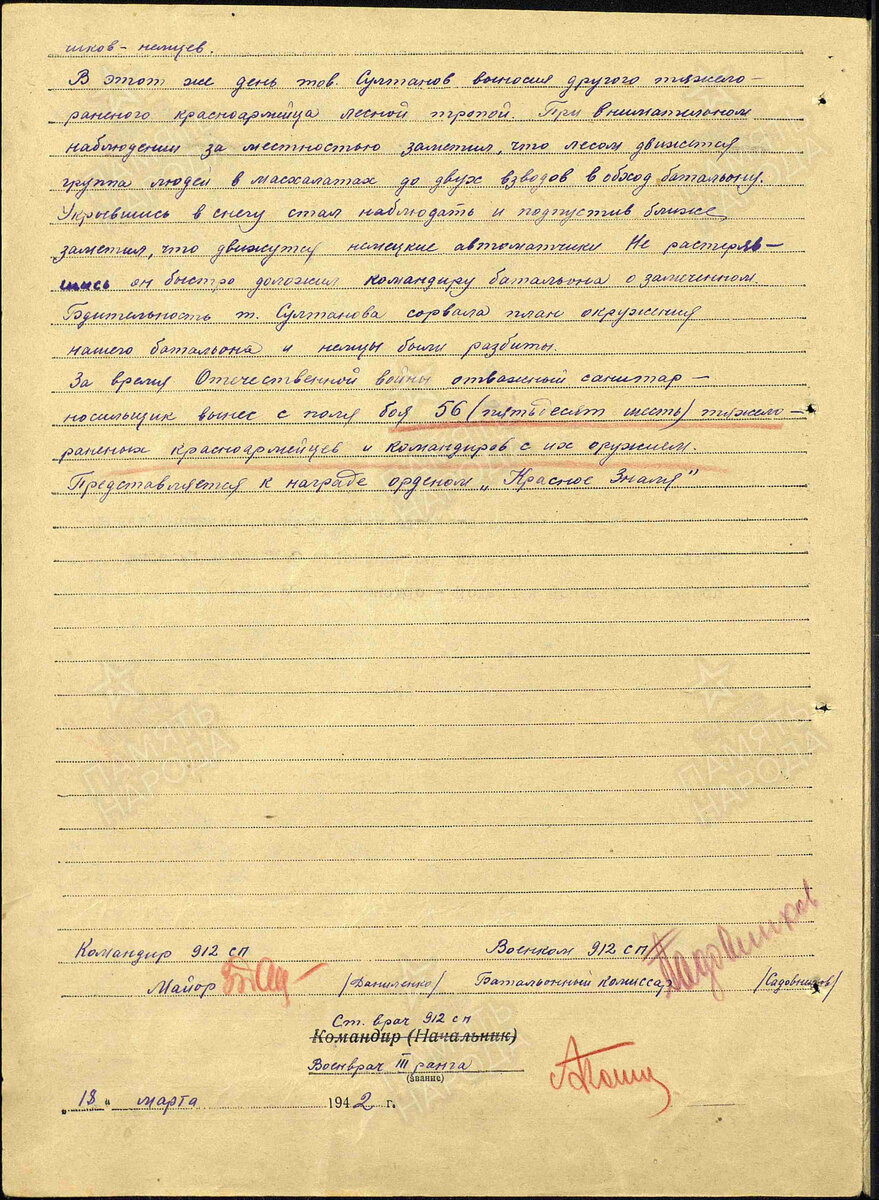 шков - немцев.
В этот же день тов Султанов выносил другого тяжело-
раненого красноармейца лесной тропой. При внимательном
наблюдении за местностью заметил, что лесом движется
группа людей в масхалатах до двух взводов в обход батальону.
Укрывшись в снегу стал наблюдать и подпустив ближе,
заметил, что движутся немецкие автоматчики Не растеряв-
шись он быстро доложил командиру батальона о замеченном.
Бдительность т. Султанова сорвала план окружения
нашего батальона и немцы были разбиты.
За время Отечественной войны отважный санитар -
носильщик вынес с поля боя 56 (пятьдесят шесть) тяжело -
раненых красноармейцев и командиров с их оружием.
Представляется к награде орденом „Красное Знамя"
ПАМЯТЬ
НАРОДА
ПАМЯТЬ
НАРОДА
Командир 912 сп Военком 912 сп
Майор /Даниленко/ Батальонный комиссар /Садовников/
Ст. врач 912 сп
Командир (Начальник)
Военврач III ранга
(звание)
„18" марта 1942 г.